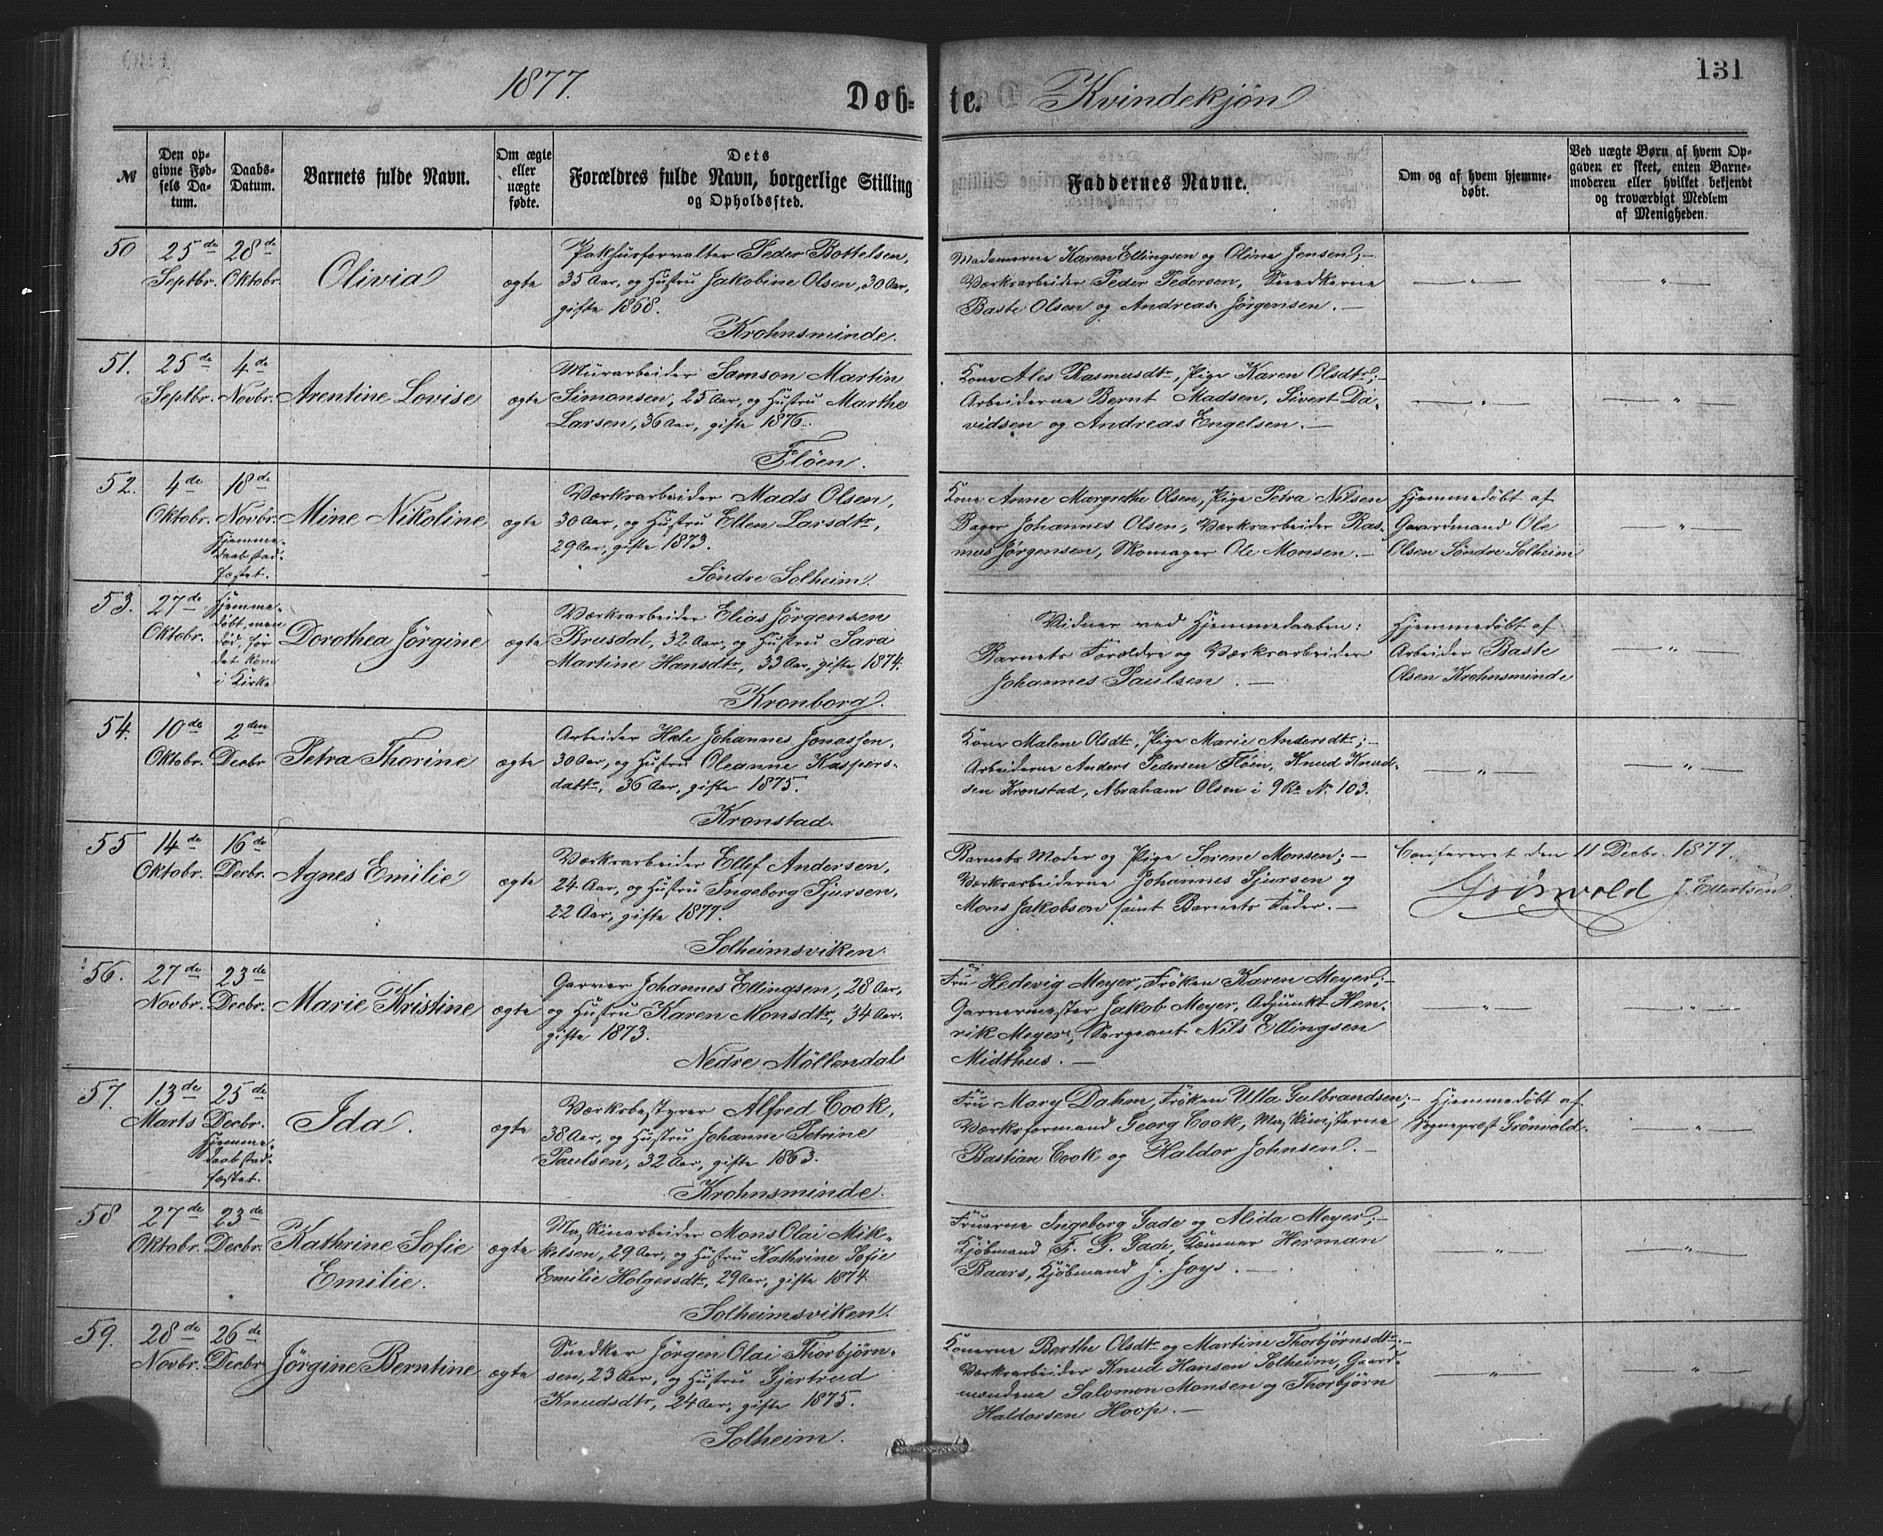 1877.
Døb-
te.
Kvindekjøn
131
№
Den op-
givne Fød-
sels Da-
tum.
Daabs-
Datum.
Barnets fulde Navn.
Om ægte
eller
uægte
fødte.
Dets
Forældres fulde Navn, borgerlige Stilling
og Opholdssted.
Faddernes Navne.
Om og af hvem hjemme-
døbt.
Ved uægte Børn af hvem Op-
gaven er skeet, enten Barne-
moderen eller hvilket bekjendt
og troværdigt Medlem
af Menigheden.
50
25de
Septbr.
28de
Oktobr.
Olivia
ægte
Pakhusforvalter Peder Bottelsen,
35 Aar, og Hustru Jakobine Olsen, 30 Aar,
gifte 1868.
Krohnsminde.
Madamerne Karen Ellingsen og Oline Jensen; —
Værksarbeider Peder Pedersen, Snedkerne
Baste Olsen og Andreas Jørgensen. —
— " —
— " —
51.
25de
Septbr.
4de
Novbr.
Arentine Lovise
ægte
Murarbeider Samson Martin
Simonsen, 25 Aar, og Hustru Marthe
Larsen, 36 Aar, gifte 1876.
Fløen.
Kone Ales Rasmusdtr, Pige Karen Olsdtr; —
Arbeiderne Bernt Madsen, Sivert Da-
vidsen og Andreas Engelsen. —
— " —
— " —
52.
4de
Oktobr.
18de
Novbr.
Hjemme-
daab stad-
fæstet.
Mine Nikoline
ægte
Værksarbeider Mads Olsen,
30 Aar, og Hustru Ellen Larsdtr,
29 Aar, gifte 1873.
Søndre Solheim.
Kone Anne Margrethe Olsen, Pige Petra Nilsen
Bager Johannes Olsen, Værksarbeider Ras-
mus Jørgensen, Skomager Ole Monsen. —
Hjemmedøbt af
Gaardmand Ole
Olsen Søndre Solheim
— " —
53.
27de
Oktobr.
Hjemme-
døbt, men
død, før
det kom
i Kirke
Dorothea Jørgine
ægte
Værksarbeider Elias Jørgensen
Brusdal, 32 Aar, og Hustru Sara
Martine Hansdtr, 33 Aar, gifte 1874.
Kronborg.
Vidner ved Hjemmedaaben:
Barnets Forældre og Værksarbeider
Johannes Paulsen. —
Hjemmedøbt af
Arbeider Baste
Olsen Krohnsminde
— " —
54.
10de
Oktobr.
2den
Decbr
Petra Thorine
ægte
Arbeider Hale Johannes Jonassen,
30 Aar, og Hustru Oleanne Kaspers-
datter, 36 Aar, gifte 1875.
Kronstad.
Kone Malene Olsdtr, Pige Marie Andersdtr; —
Arbeiderne Anders Pedersen Fløen, Knud Knud-
sen Kronstad, Abraham Olsen i 9 Rd. N. 103.
— " —
— " —
55
14de
Oktobr.
16de
Decbr.
Agnes Emilie
ægte
Værksarbeider Ellef Andersen,
24 Aar, og Hustru Ingeborg Sjursen,
22 Aar, gifte 1877.
Solheimsviken
Barnets Moder og Pige Serene Monsen; —
Værksarbeiderne Johannes Sjursen og
Mons Jakobsen samt Barnets Fader. —
Confereret den 11 Decbr. 1877.
Grönvold J. Ellertsen
56.
27de
Novbr.
23de
Decbr.
Marie Kristine
ægte
Garver Johannes Ellingsen, 28 Aar,
og Hustru Karen Monsdtr, 34 Aar.
gifte 1873.
Nedre Møllendal
Fru Hedevig Meyer, Frøken Karen Meyer; —
Garvermester Jakob Meyer, Adjunkt Hen-
rik Meyer, Sergeant Nils Ellingsen
Midthus. —
— " —
— " —
57.
13de
Marts
25de
Decbr.
Hjemme-
daab stad-
fæstet.
Ida.
ægte
Værksbestyrer Alfred Cook,
38 Aar, og Hustru Johanne Petrine
Paulsen, 32 Aar, gifte 1863.
Krohnsminde.
Fru Mary Dahm, Frøken Ulla Gulbrandsen; —
Værksformand Georg Cook, Maskinisterne
Bastian Cook og Haldor Johnsen. —
Hjemmedøbt af
Sogneprest Grönvold.
— " —
58
27de
Oktobr.
23de
Decbr.
Kathrine Sofie
Emilie.
ægte
Maskinarbeider Mons Olai Mik-
kelsen, 29 Aar, og Hustru Kathrine Sofie
Emilie Holgersdtr, 29 Aar, gifte 1874.
Solheimsviken.
Fruerne Ingeborg Gade og Alida Meyer; —
Kjøbmand F. G. Gade, Kæmner Herman
Baars, Kjøbmand J. Joys. —
— " —
— " —
59.
28de
Novbr.
26de
Decbr
Jørgine Berntine
ægte
Snedker Jørgen Olai Thorbjørn-
sen, 23 Aar, og Hustru Gjertrud
Knudsdtr, 24 Aar, gifte 1875.
Solheim.
Konerne Berthe Olsdtr og Martine Thorbjørnsdtr; —
Værksarbeider Knud Hansen Solheim, Gaard-
mændene Salomon Monsen og Thorbjørn
Haldorsen Hoop. —
— " —
"